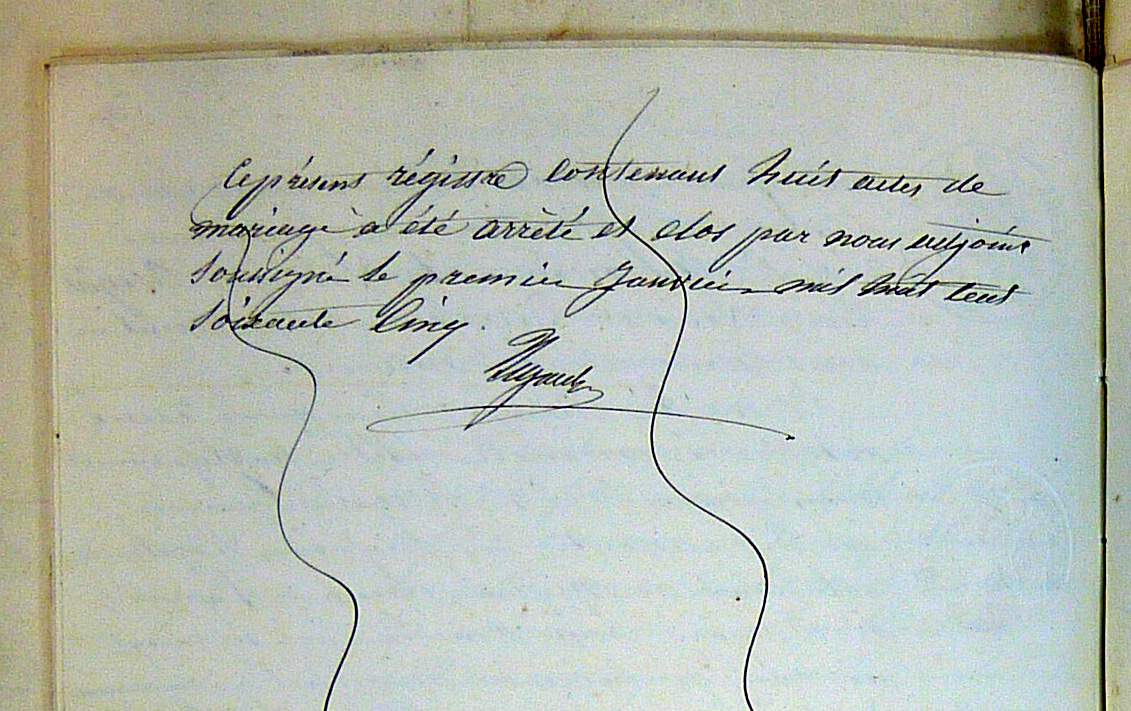 Le présent régistre contenant huit actes de
mariage a été arrêté et clos par nous adjoint
soussigné le premier Janvier mil huit cent
soixante cinq.